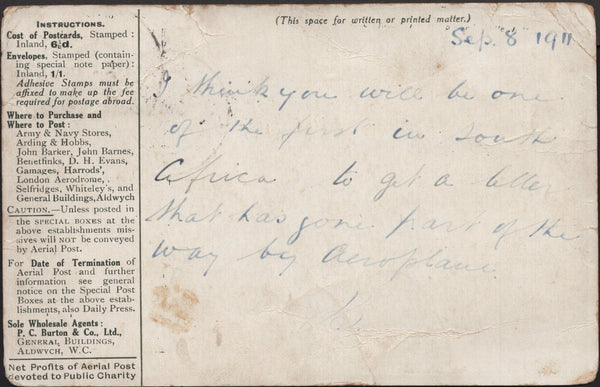 INSTRUCTIONS.
Cost of Postcards, Stamped :
Inland, 6½d.
Envelopes, Stamped (contain-
ing special note paper):
Inland, 1/1.
Adhesive Stamps must be
affixed to make up the fee
required for postage abroad.
Where to Purchase and
Where to Post :
Army & Navy Stores,
Arding & Hobbs,
John Barker, John Barnes,
Benetfinks, D. H. Evans,
Gamages, Harrods',
London Aerodrome,
Selfridges, Whiteley's, and
General Buildings, Aldwych
CAUTION.—Unless posted in
the SPECIAL BOXES at the
above establishments mis-
sives will NOT be conveyed
by Aerial Post.
For Date of Termination of
Aerial Post and further
information see general
notice on the Special Post
Boxes at the above estab-
lishments, also Daily Press.
Sole Wholesale Agents :
P. C. Burton & Co., Ltd.,
GENERAL BUILDINGS,
ALDWYCH, W.C.
Net Profits of Aerial Post
devoted to Public Charity
(This space for written or printed matter.)
Sep. 8 1911
I think you will be one
of the first in South
Africa to get a letter
that has gone part of the
way by Aeroplane